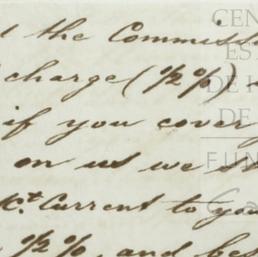 the Commiss
charge (1/2 %)
if you cover
on us we s
Ct. Current to you
1/2 %, and bes
CEN
ES
DE
DE
FUN